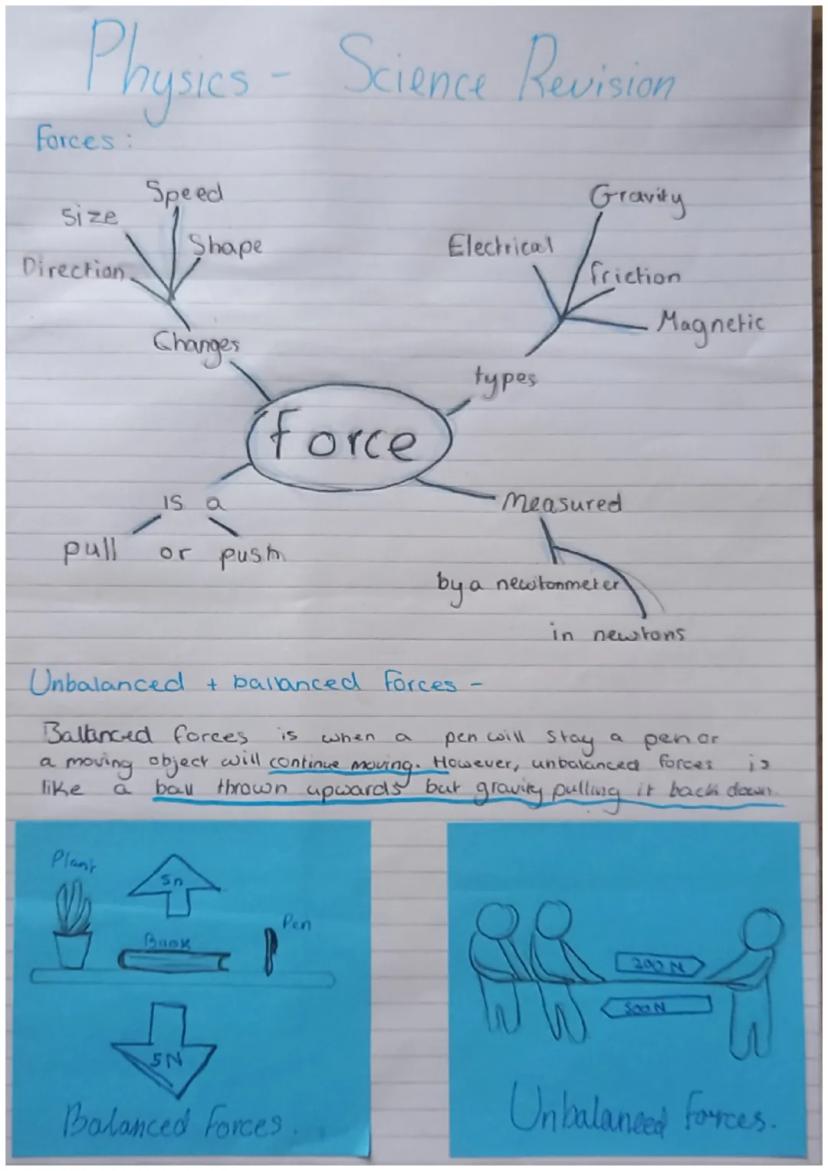 Physics - Science Revision
Forces:
Speed
Size
Shape
Direction
Changes
Gravity
Electrical
friction
Magnetic
types
force
is a
pull or push
Measured
by a newtonmeter
in newtons
Unbalanced + ballanced forces -
Ballanced forces is when a pen will stay a pen or
a moving object will continue moving. However, unbalanced forces is
like a ball thrown upwards but gravity pulling it back down.
Plant
5n
Book
Pen
5N
Balanced forces.
200N
500N
Unbalanced forces.